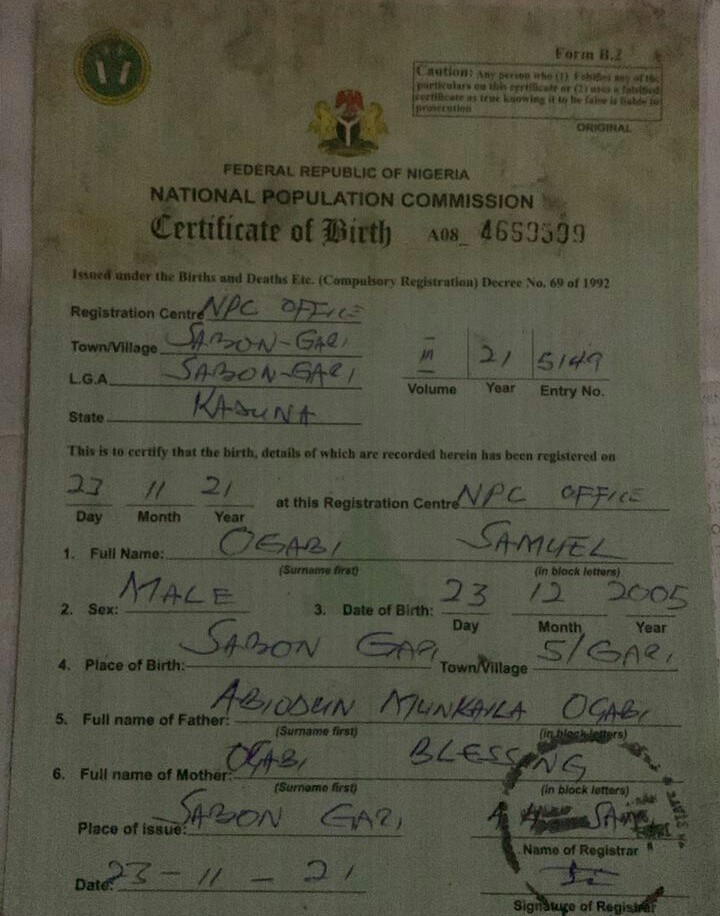 Form B.2
Caution: Any person who (1) Falsifies any of the
particulars on this certificate or (2) uses a falsified
certificate as true knowing it to be false is liable to
prosecution
ORIGINAL
FEDERAL REPUBLIC OF NIGERIA
NATIONAL POPULATION COMMISSION
Certificate of Birth A08_ 4659599
Issued under the Births and Deaths Etc. (Compulsory Registration) Decree No. 69 of 1992
Registration Centre NPC OFFICE
Town/Village SABON-GARI
L.G.A SABON-GARI
State KADUNA
III 21 5149
Volume Year Entry No.
This is to certify that the birth, details of which are recorded herein has been registered on
23 11 21 at this Registration Centre NPC OFFICE
Day Month Year
1. Full Name: OGABI SAMUEL
(Surname first) (in block letters)
2. Sex: MALE 3. Date of Birth: 23 12 2005
Day Month Year
4. Place of Birth: SABON GARI Town/Village S/GARI
5. Full name of Father: ABIODUN MUNKAILA OGABI
(Surname first) (in block letters)
6. Full name of Mother: OGABI BLESSING
(Surname first) (in block letters)
Place of issue: SABON GARI
Name of Registrar
Date: 23-11-21
Signature of Registrar